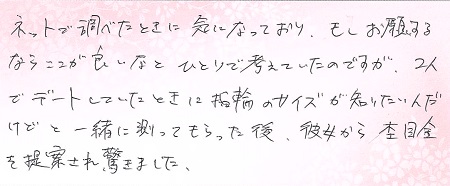 ネットで調べたときに気になっており、もしお願する
ならここが良いなと ひとりで考えていたのですが、2人
でデートしていたときに指輪のサイズが知りたいんだ
けどと一緒に測ってもらった後、彼女から杢目金
を提案され驚きました、